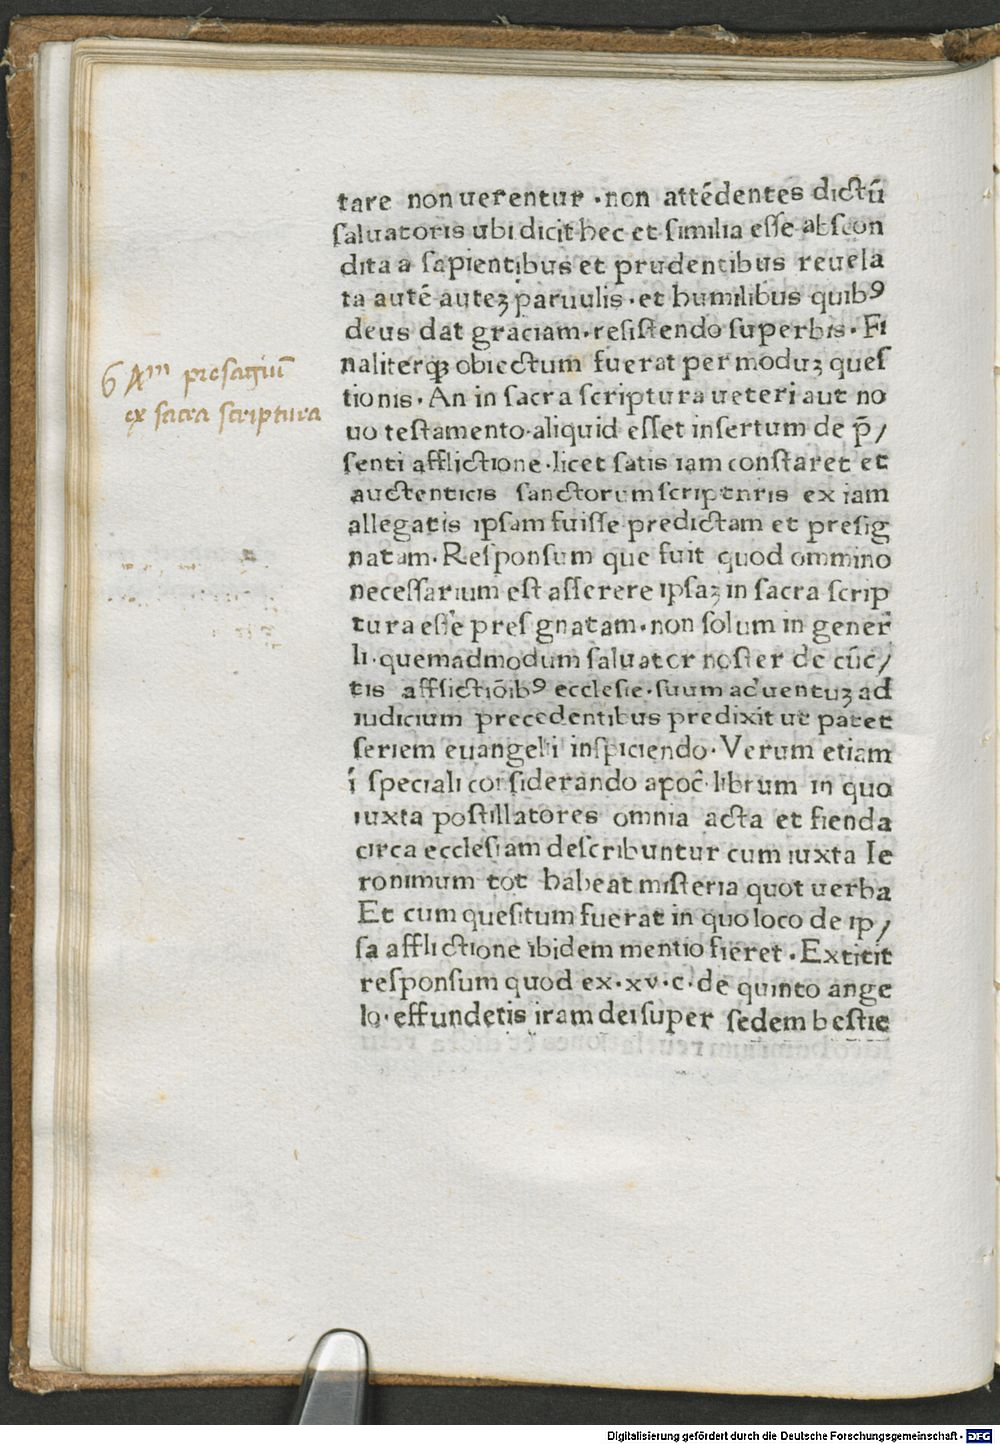 tare non uerentur · non attēdentes dictū
saluatoris ubi dicit hec et similia esse abscon
dita a sapientibus et prudentibus reuela
ta autē auteꝫ paruulis · et humilibus quibꝰ
deus dat graciam · resistendo superbis · Fi
naliterqꝫ obiectum fuerat per moduꝫ ques
tionis · An in sacra scriptura ueteri aut no
uo testamento · aliquid esset insertum de p̄/
senti afflictione · licet satis iam constaret et
auctenticis sanctorum scripturis ex iam
allegatis ipsam fuisse predictam et presig
natam · Responsum que fuit quod ommino
necessarium est asserere ipsaꝫ in sacra scrip
tura esse pres gnatam · non solum in gener
li · quemadmodum saluator noster de cūc/
tis afflictiōibꝰ ecclesie · suum aduentuꝫ ad
iudicium precedentibus predixit ut patet
seriem euangelii inspiciendo · Verum etiam
ī speciali considerando apoc̄ · librum in quo
iuxta postillatores omnia acta et fienda
circa ecclesiam describuntur cum iuxta Ie
ronimum tot habeat misteria quot uerba
Et cum quesitum fuerat in quo loco de ip/
sa afflictione ibidem mentio fieret · Extitit
responsum quod ex · xv · c · de quinto ange
lo · effundetis iram dei super sedem bestie
6 Am presagiū
ex sacra scriptura
Digitalisierung gefördert durch die Deutsche Forschungsgemeinschaft - DFG